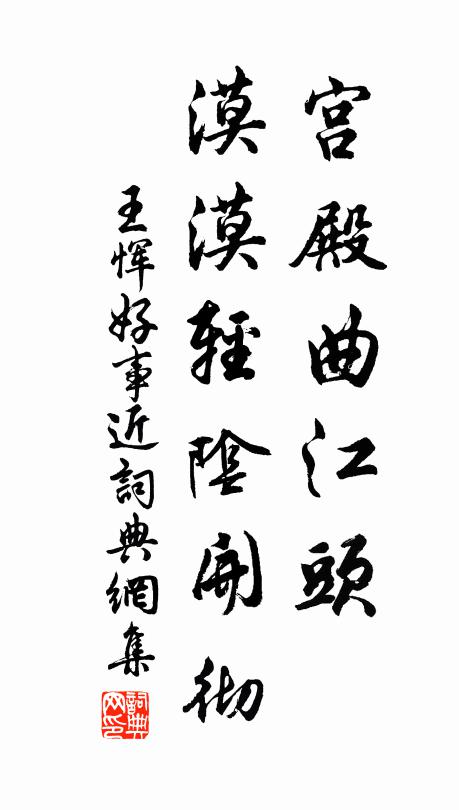 宮殿曲江頭
漠漠輕陰開彻
王惲好事近詞典網集
詞典网印